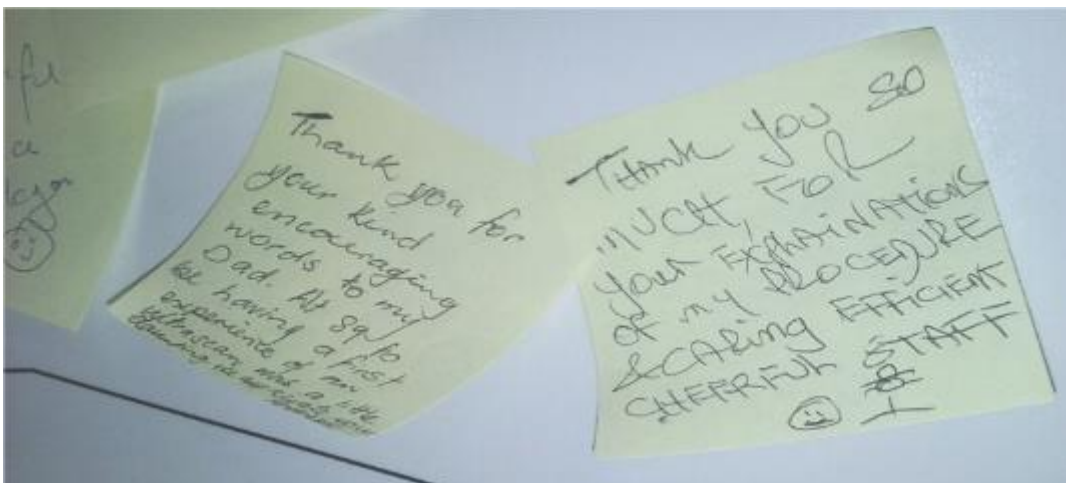 ful
a
Thank you for
your kind
encouraging
words to my
Dad. At 89 to
be having a first
experience of an
ultrascan was a little
daunting to
THANK You SO
MUCH, FOR
your EXPLAINATIONS
OF MY PROCEDURE
& CARING EFFICIENT
CHEERFUL STAFF